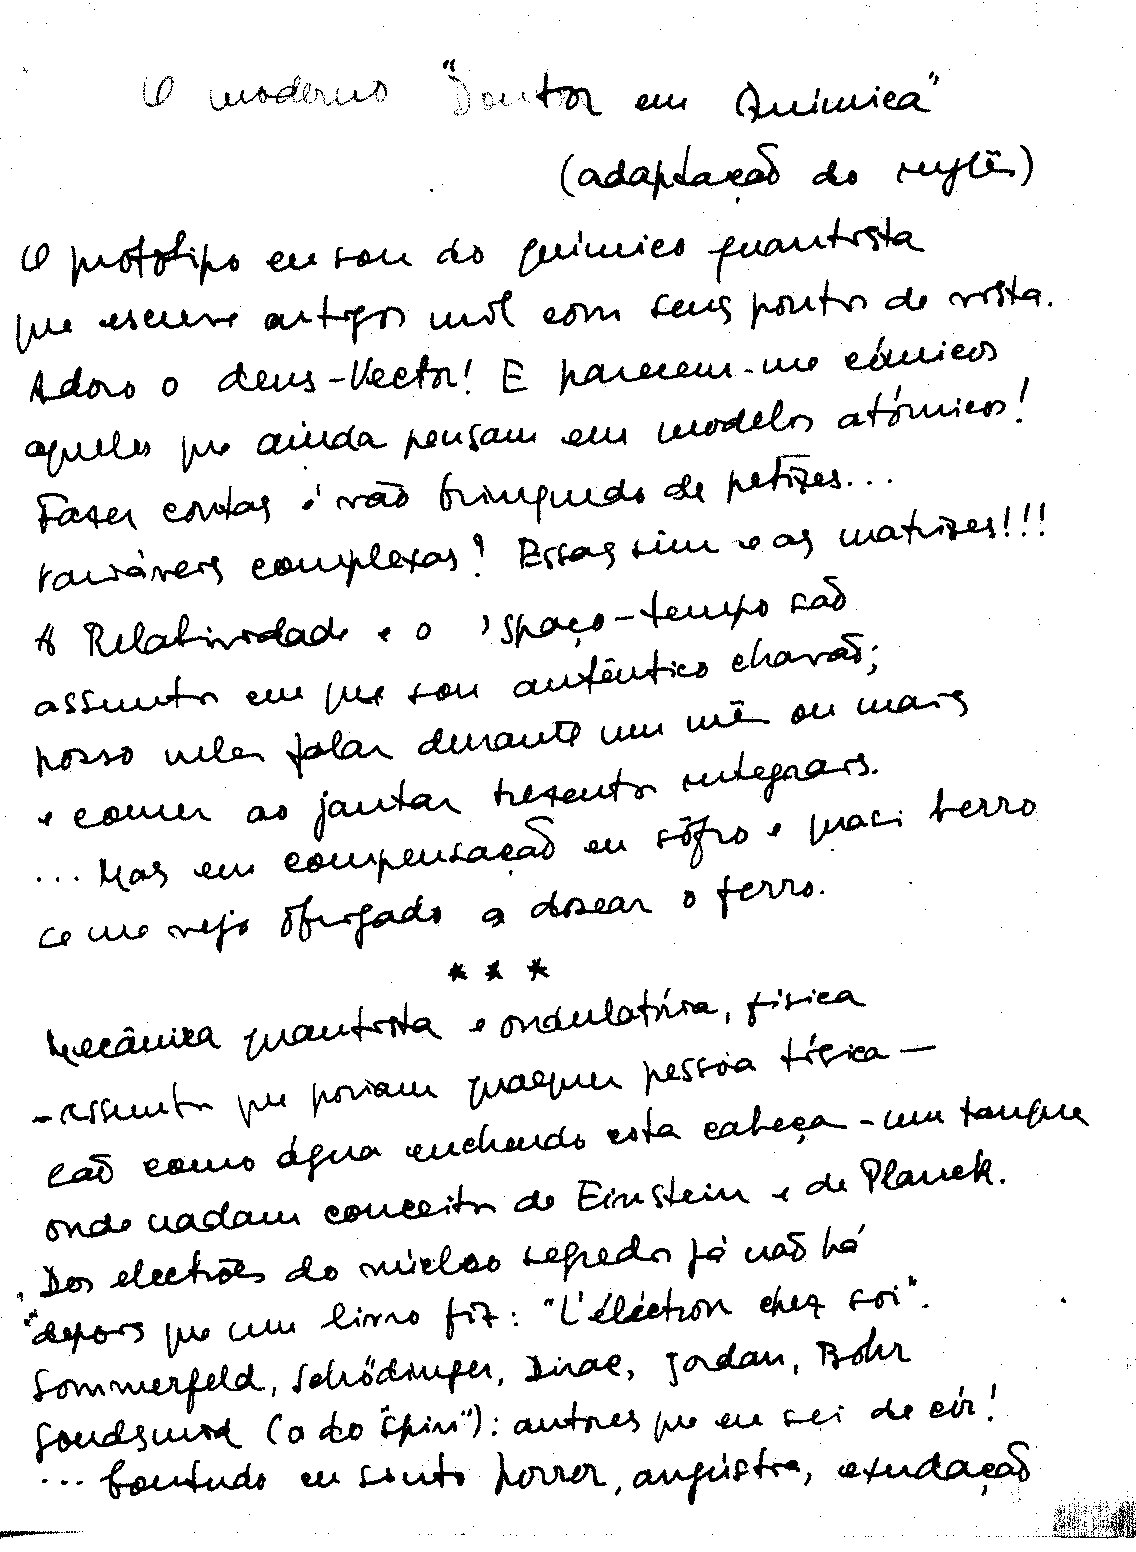 O moderno "Doutor em Química"
(adaptação do inglês)
O protótipo eu sou do químico quantista
que escreve artigos mil com seus pontos de vista.
Adoro o deus-Vector! E parecem-me cómicos
aqueles que ainda pensam em modelos atómicos!
Fazer contas é vão brinquedo de petizes...
Variáveis complexas? Essas sim e as matrizes!!!
A Relatividade e o 'spaço-tempo são
assuntos em que sou autêntico chavão;
posso neles falar durante um mês ou mais
e comer ao jantar trezentos integrais.
... Mas em compensação eu sôfro e quasi berro
se me vejo obrigado a dosear o ferro.
* * *
Mecânica quantista e ondulatória, física
- assuntos que poriam qualquer pessoa tísica -
são como água enchendo esta cabeça - um tanque
onde nadam conceitos de Einstein e de Planck.
Dos electrões do núcleo segredos já não há
depois que um livro fiz: "L'éléctron chez soi".
Sommerfeld, Schödinger, Dirac, Jordan, Bohr
Goudsmid (o do "spin"): autores que eu sei de cór!
... Contudo eu sinto horror, angústia, exudação